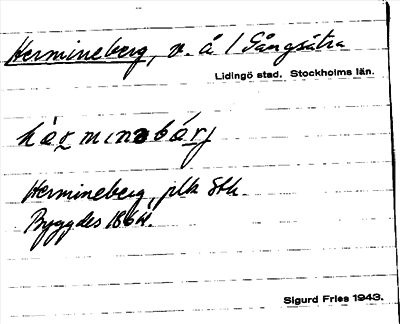 Hermineberg, v. å / Gångsätra
Lidingö stad. Stockholms län.
hærminəbárj
Hermineberg, plk Sthk.
Byggdes 1864.
Sigurd Fries 1943.